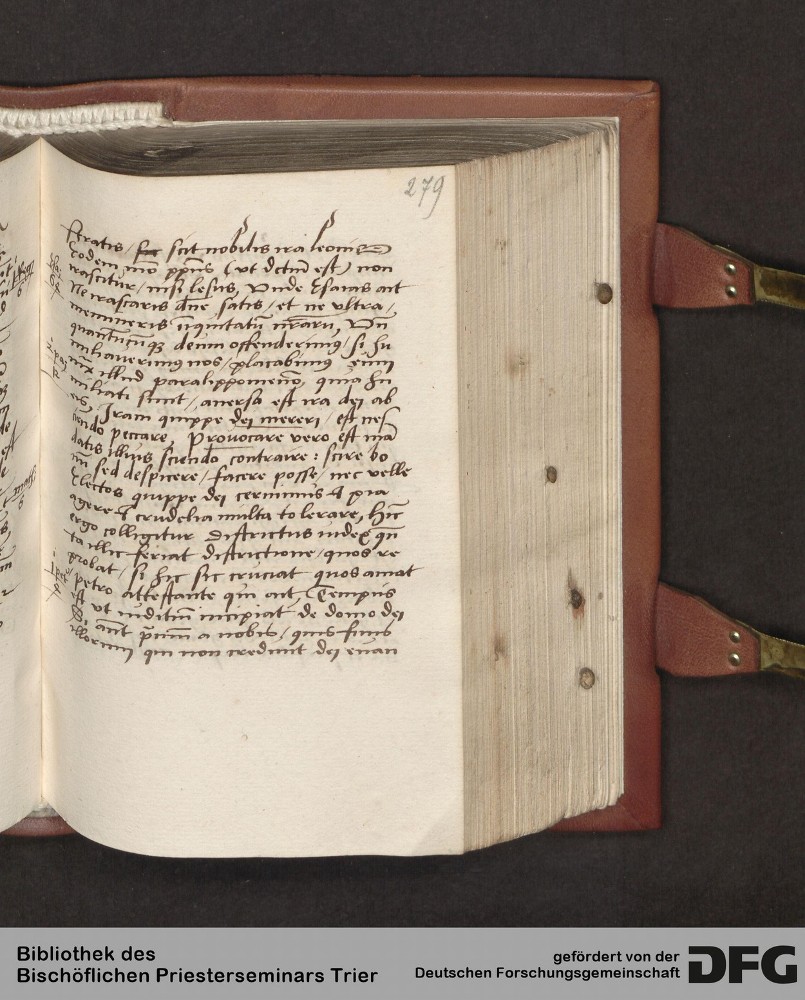 279
stratis / scit nobilis ira leonis
Eodem mo ppius (ut dctum est) non
irascitur / nisi lesus, Vnde Esaias ait
Ne irascaris dne satis / et ne vltra /
memineris iniquitatu nraru, Vn
quantumq3 deum offenderimus / si hu
miliauerimus nos / placabimus eum
iux illud paralippomeno, quia hu
miliati sunt / auersa est ira dei ab
eis, Iram quippe dei mereri / est nes
iendo peccare, Provocare vero est man
datis illius sciendo contraire: scire bo
num sed despicere / facere posse / nec velle
Electos quippe dei cernimus et pia
agere et crudelia multa tolerare, Hinc
ergo colligitur districtus iudex qn
ta illic feriat districtione / quos re
probat / si hic sic cruciat quos amat
petro attestante qui ait, Tempus
est ut iuditium incipiat de domo dei
Si aut primum a nobis / quis finis
illorum qui non credunt dei euan
Bibliothek des
Bischöflichen Priesterseminars Trier
gefördert von der
Deutschen Forschungsgemeinschaft
DFG